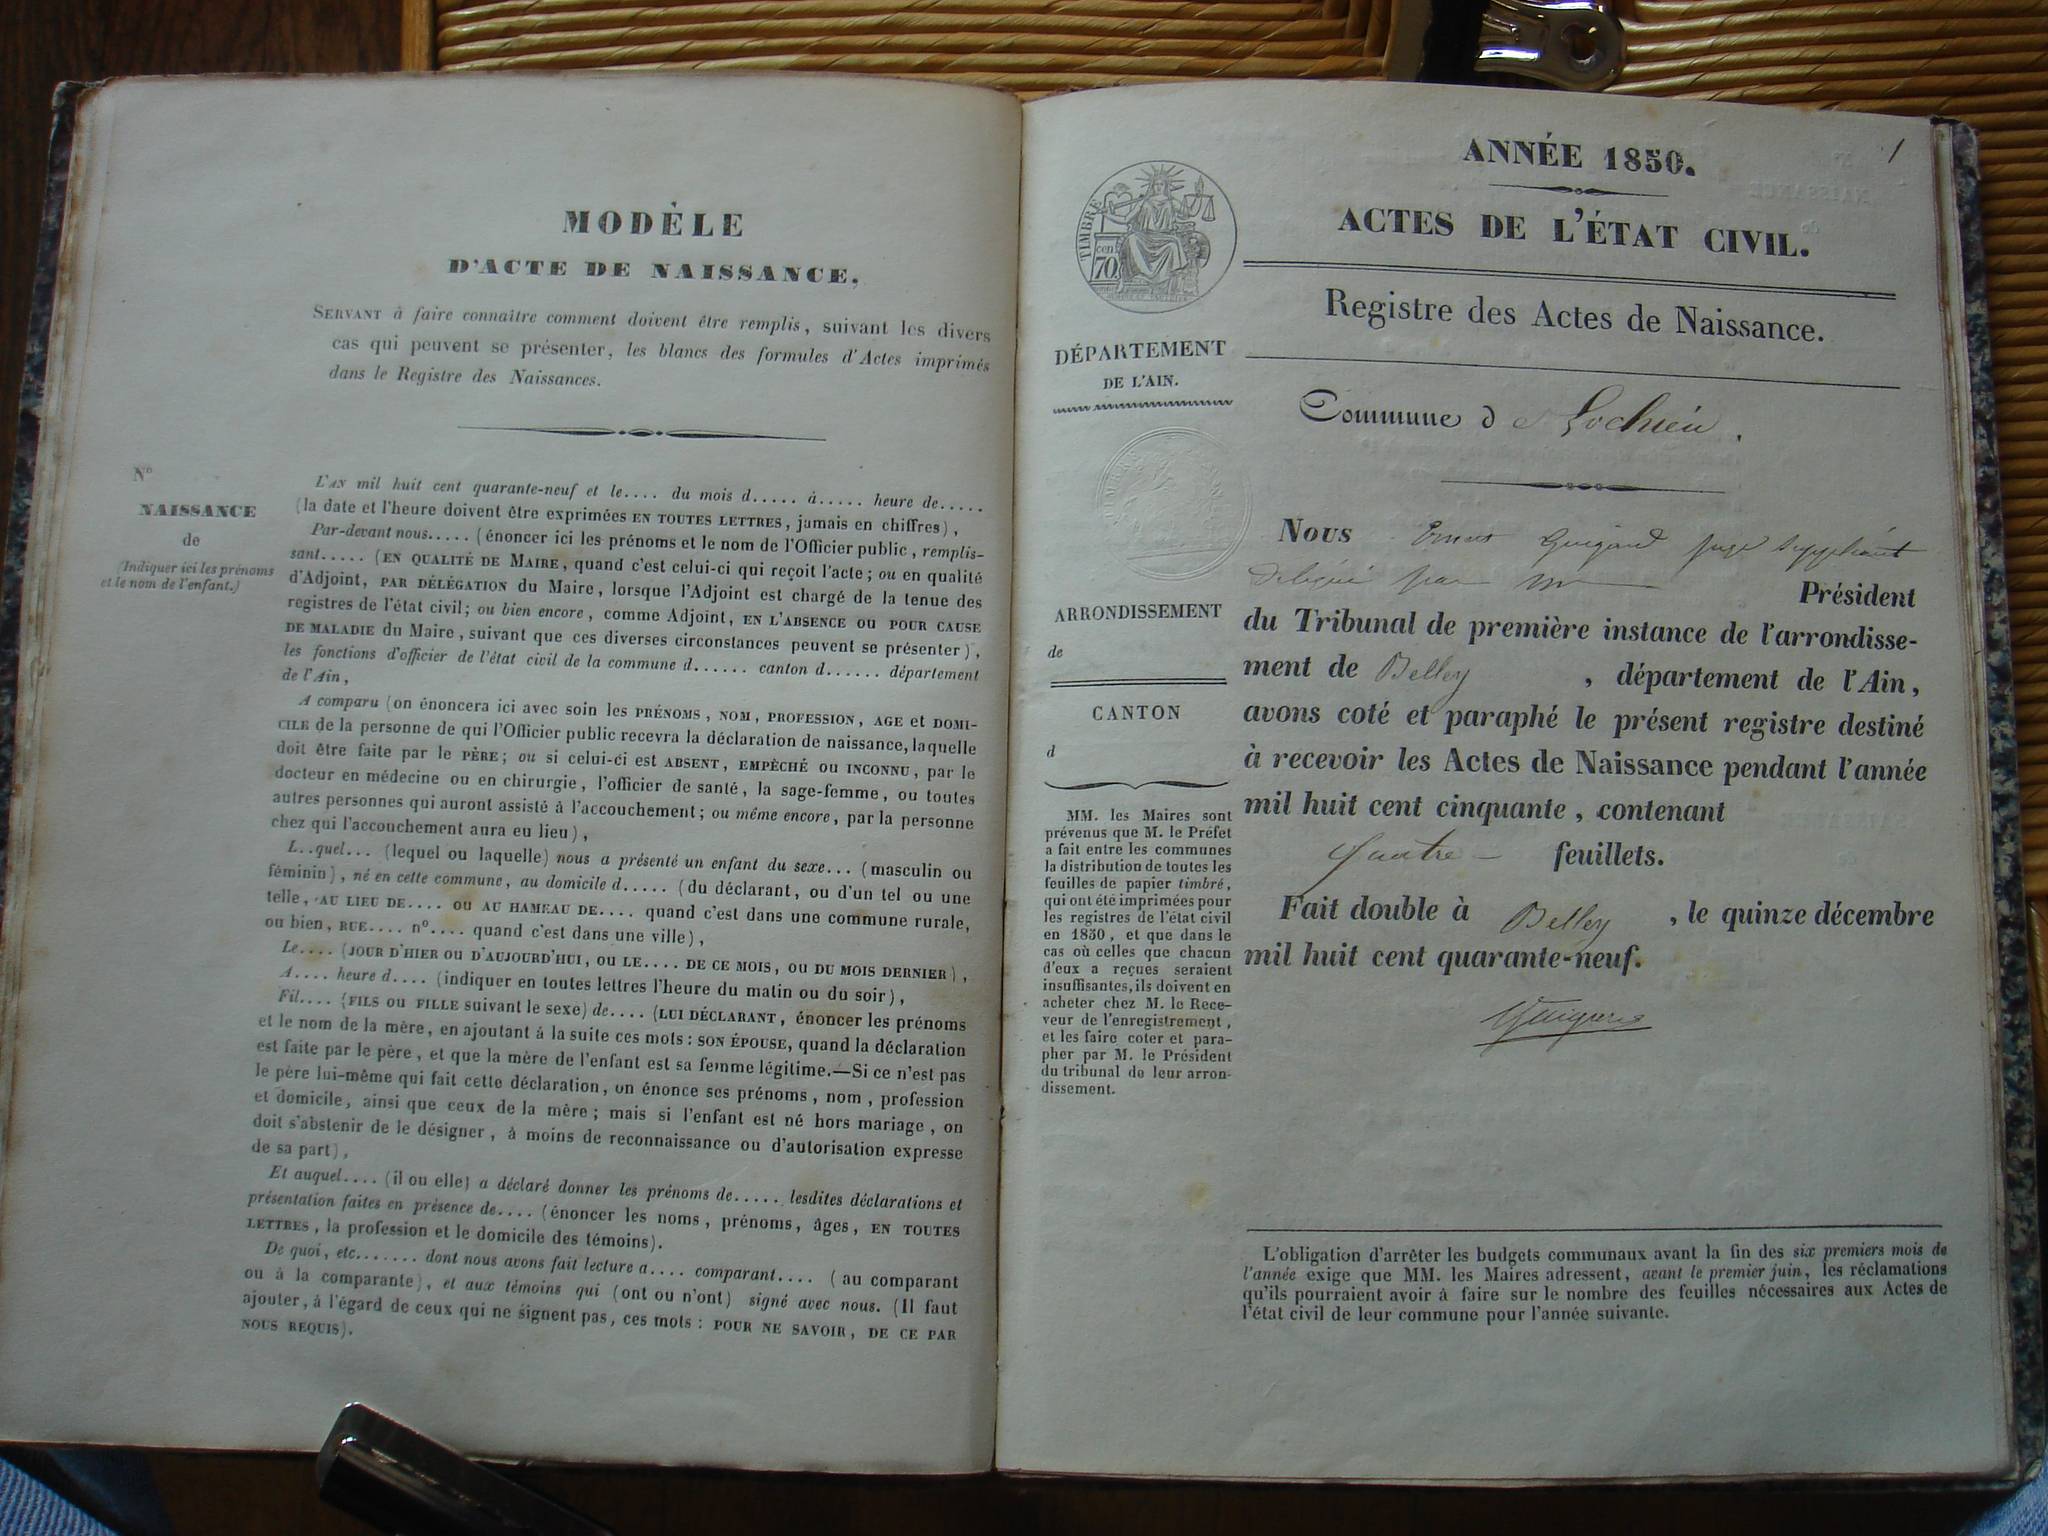 MODÈLE
D'ACTE DE NAISSANCE,
SERVANT à faire connaître comment doivent être remplis, suivant les divers
cas qui peuvent se présenter, les blancs des formules d'Actes imprimés
dans le Registre des Naissances.
N°
NAISSANCE
de
(Indiquer ici les prénoms
et le nom de l'enfant.)
L'AN mil huit cent quarante-neuf et le.... du mois d..... à..... heure de.....
(la date et l'heure doivent être exprimées EN TOUTES LETTRES, jamais en chiffres),
Par-devant nous..... (énoncer ici les prénoms et le nom de l'Officier public, remplis-
sant..... (EN QUALITÉ DE MAIRE, quand c'est celui-ci qui reçoit l'acte; ou en qualité
d'Adjoint, PAR DÉLÉGATION du Maire, lorsque l'Adjoint est chargé de la tenue des
registres de l'état civil; ou bien encore, comme Adjoint, EN L'ABSENCE OU POUR CAUSE
DE MALADIE du Maire, suivant que ces diverses circonstances peuvent se présenter),
les fonctions d'officier de l'état civil de la commune d...... canton d...... département
de l'Ain,
A comparu (on énoncera ici avec soin les PRÉNOMS, NOM, PROFESSION, AGE et DOMI-
CILE de la personne de qui l'Officier public recevra la déclaration de naissance, laquelle
doit être faite par le PÈRE; ou si celui-ci est ABSENT, EMPÊCHÉ OU INCONNU, par le
docteur en médecine ou en chirurgie, l'officier de santé, la sage-femme, ou toutes
autres personnes qui auront assisté à l'accouchement; ou même encore, par la personne
chez qui l'accouchement aura eu lieu),
L..quel... (lequel ou laquelle) nous a présenté un enfant du sexe... (masculin ou
féminin), né en cette commune, au domicile d..... (du déclarant, ou d'un tel ou une
telle, AU LIEU DE.... OU AU HAMEAU DE.... quand c'est dans une commune rurale,
ou bien, RUE.... n°.... quand c'est dans une ville),
Le.... (JOUR D'HIER OU D'AUJOURD'HUI, OU LE.... DE CE MOIS, OU DU MOIS DERNIER),
A.... heure d.... (indiquer en toutes lettres l'heure du matin ou du soir),
Fil.... (FILS OU FILLE suivant le sexe) de.... (LUI DÉCLARANT, énoncer les prénoms
et le nom de la mère, en ajoutant à la suite ces mots: SON ÉPOUSE, quand la déclaration
est faite par le père, et que la mère de l'enfant est sa femme légitime.—Si ce n'est pas
le père lui-même qui fait cette déclaration, on énonce ses prénoms, nom, profession
et domicile, ainsi que ceux de la mère; mais si l'enfant est né hors mariage, on
doit s'abstenir de le désigner, à moins de reconnaissance ou d'autorisation expresse
de sa part),
Et auquel.... (il ou elle) a déclaré donner les prénoms de..... lesdites déclarations et
présentation faites en présence de.... (énoncer les noms, prénoms, âges, EN TOUTES
LETTRES, la profession et le domicile des témoins).
De quoi, etc....... dont nous avons fait lecture a.... comparant.... (au comparant
ou à la comparante), et aux témoins qui (ont ou n'ont) signé avec nous. (Il faut
ajouter, à l'égard de ceux qui ne signent pas, ces mots: POUR NE SAVOIR, DE CE PAR
NOUS REQUIS).
1
ANNÉE 1850.
ACTES DE L'ÉTAT CIVIL.
Registre des Actes de Naissance.
TIMBRE
cen
70
DÉPARTEMENT
DE L'AIN.
ARRONDISSEMENT
de
CANTON
d
MM. les Maires sont
prévenus que M. le Préfet
a fait entre les communes
la distribution de toutes les
feuilles de papier timbré,
qui ont été imprimées pour
les registres de l'état civil
en 1850, et que dans le
cas où celles que chacun
d'eux a reçues seraient
insuffisantes, ils doivent en
acheter chez M. le Rece-
veur de l'enregistrement,
et les faire coter et para-
pher par M. le Président
du tribunal de leur arron-
dissement.
Commune d e Lochieu.
Nous Ernest Guigard juge suppléant
délégué par Mr Président
du Tribunal de première instance de l'arrondisse-
ment de Belley, département de l'Ain,
avons coté et paraphé le présent registre destiné
à recevoir les Actes de Naissance pendant l'année
mil huit cent cinquante, contenant
quatre feuillets.
Fait double à Belley, le quinze décembre
mil huit cent quarante-neuf.
L'obligation d'arrêter les budgets communaux avant la fin des six premiers mois de
l'année exige que MM. les Maires adressent, avant le premier juin, les réclamations
qu'ils pourraient avoir à faire sur le nombre des feuilles nécessaires aux Actes de
l'état civil de leur commune pour l'année suivante.